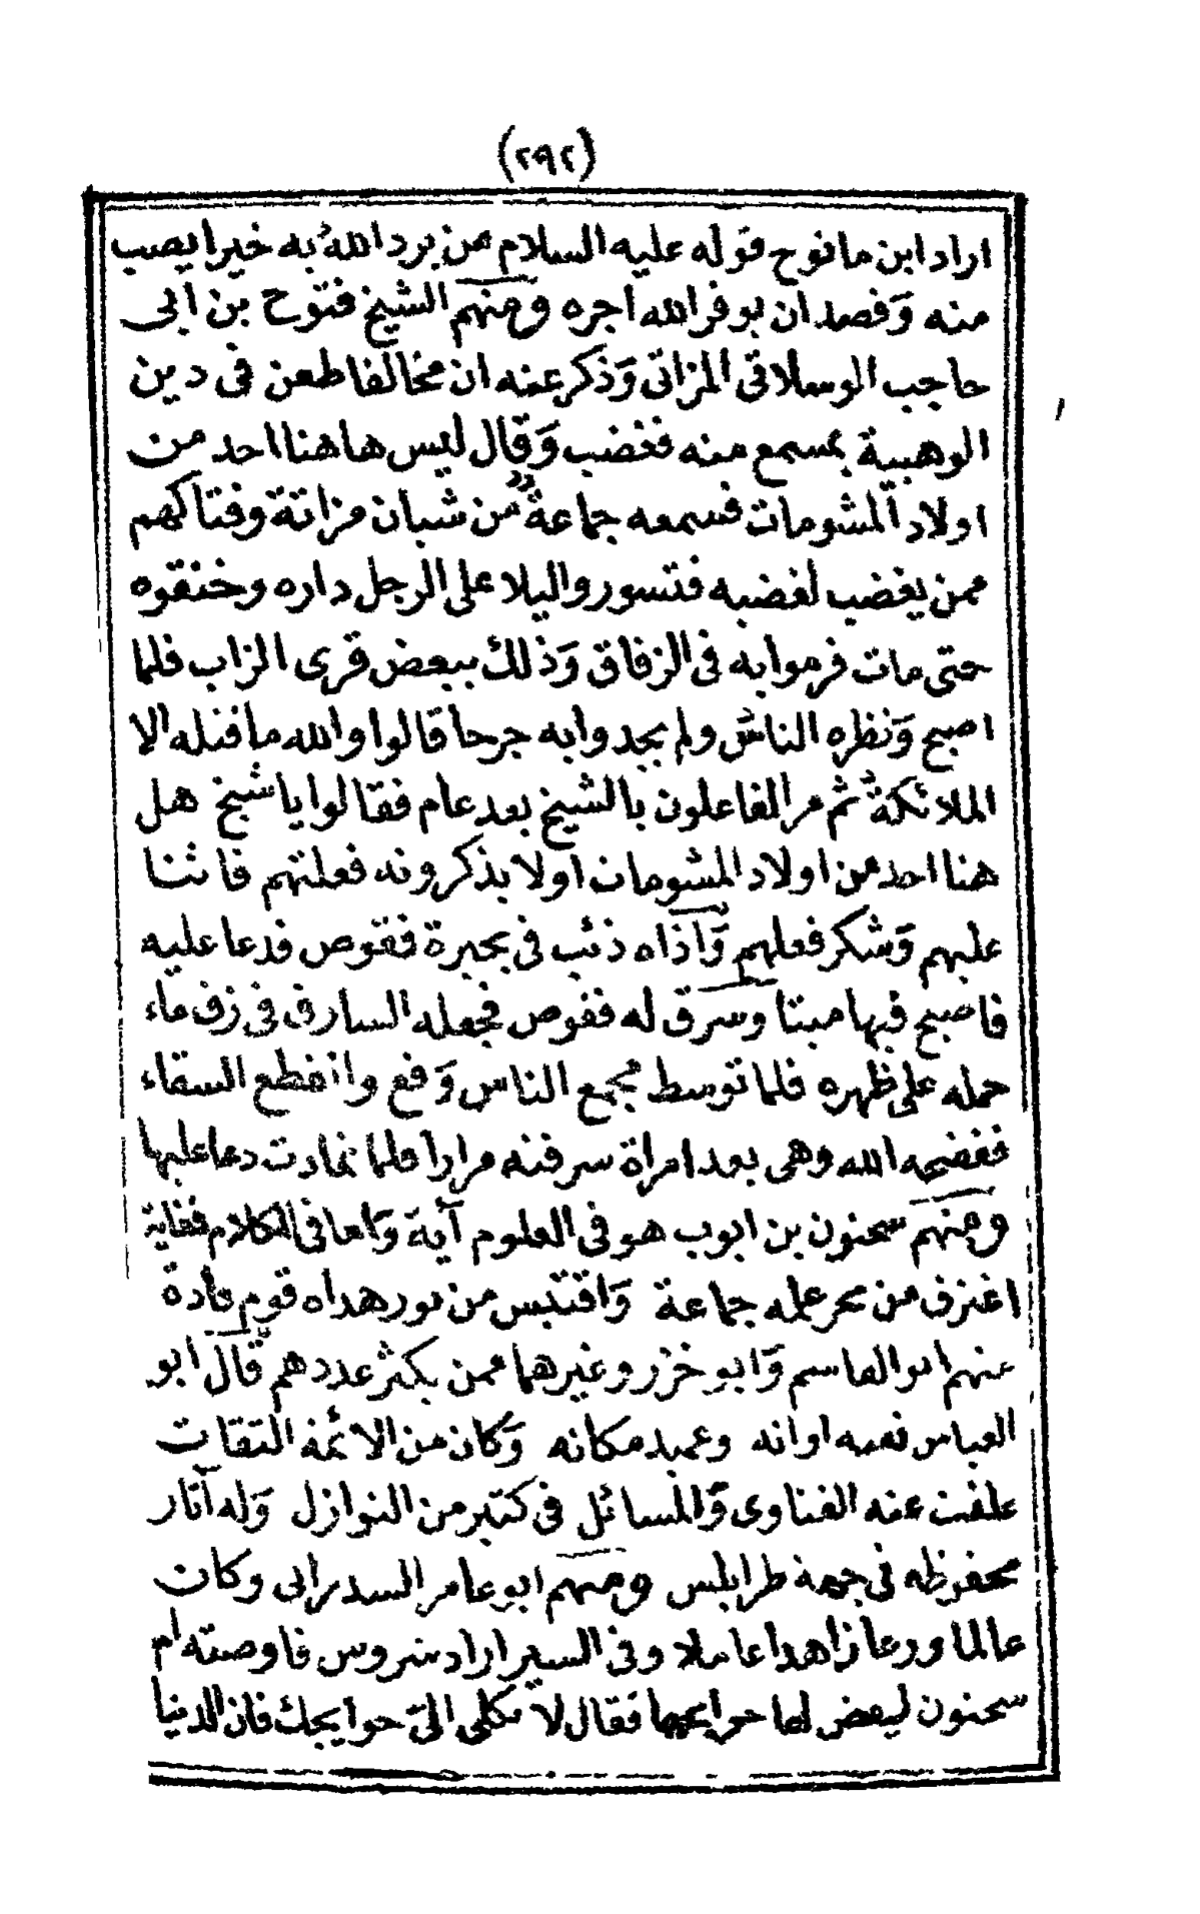 (٢٩٢)
اراد ابن مانوح قوله عليه السلام من يرد الله به خيرا يصب
منه وقصد ان يوفر الله اجره ومنهم الشيخ فتوح بن ابى
حاجب الوسلاتى المزاتى وذكر عنه ان مخالفا طعن فى دين
الوهبية بمسمع منه فغضب وقال ليس هاهنا احد من
اولاد المشومات فسمعه جماعة من شبان مزاتة وفتاكهم
ممن يغضب لغضبه فتسوروا ليلا على الرجل داره وخنقوه
حتى مات فرموا به فى الزقاق وذلك ببعض قرى الزاب فلما
اصبح ونظره الناس ولم يجدوا به جرحا قالوا والله ما قتله الا
الملائكة ثم مر الفاعلون بالشيخ بعد عام فقالوا يا شيخ هل
هنا احد من اولاد المشومات اولا يذكرونه فعلتهم فاثنا
عليهم وشكر فعلهم وآذاه ذئب فى بحيرة فقوص فدعا عليه
فاصبح فيها ميتا وسرق له فقوص فجعله السارق فى زق ماء
حمله على ظهره فلما توسط مجمع الناس وقع وانقطع السقاء
ففضحه الله وهى بعد امراة سرقته مرارا فلما تمادت دعا عليها
ومنهم سحنون بن ايوب هو فى العلوم آية واما فى الكلام فغاية
اغترف من بحر علمه جماعة واقتبس من نور هداه قوم قادة
منهم ابو القاسم وابو خزر وغيرهما ممن يكثر عددهم قال ابو
العباس فقيه اوانه وعميد مكانه وكان من الائمة الثقات
علقت عنه الفتاوى والمسائل فى كثير من النوازل وله آثار
محفوظه فى جهة طرابلس ومنهم ابو عامر السدراتى وكان
عالما ورعا زاهدا عاملا وفى السير اراد سروس فاوصته ام
سحنون ليقض لها حوايجها فقال لا تكلى الىّ حوايجك فان الدنيا